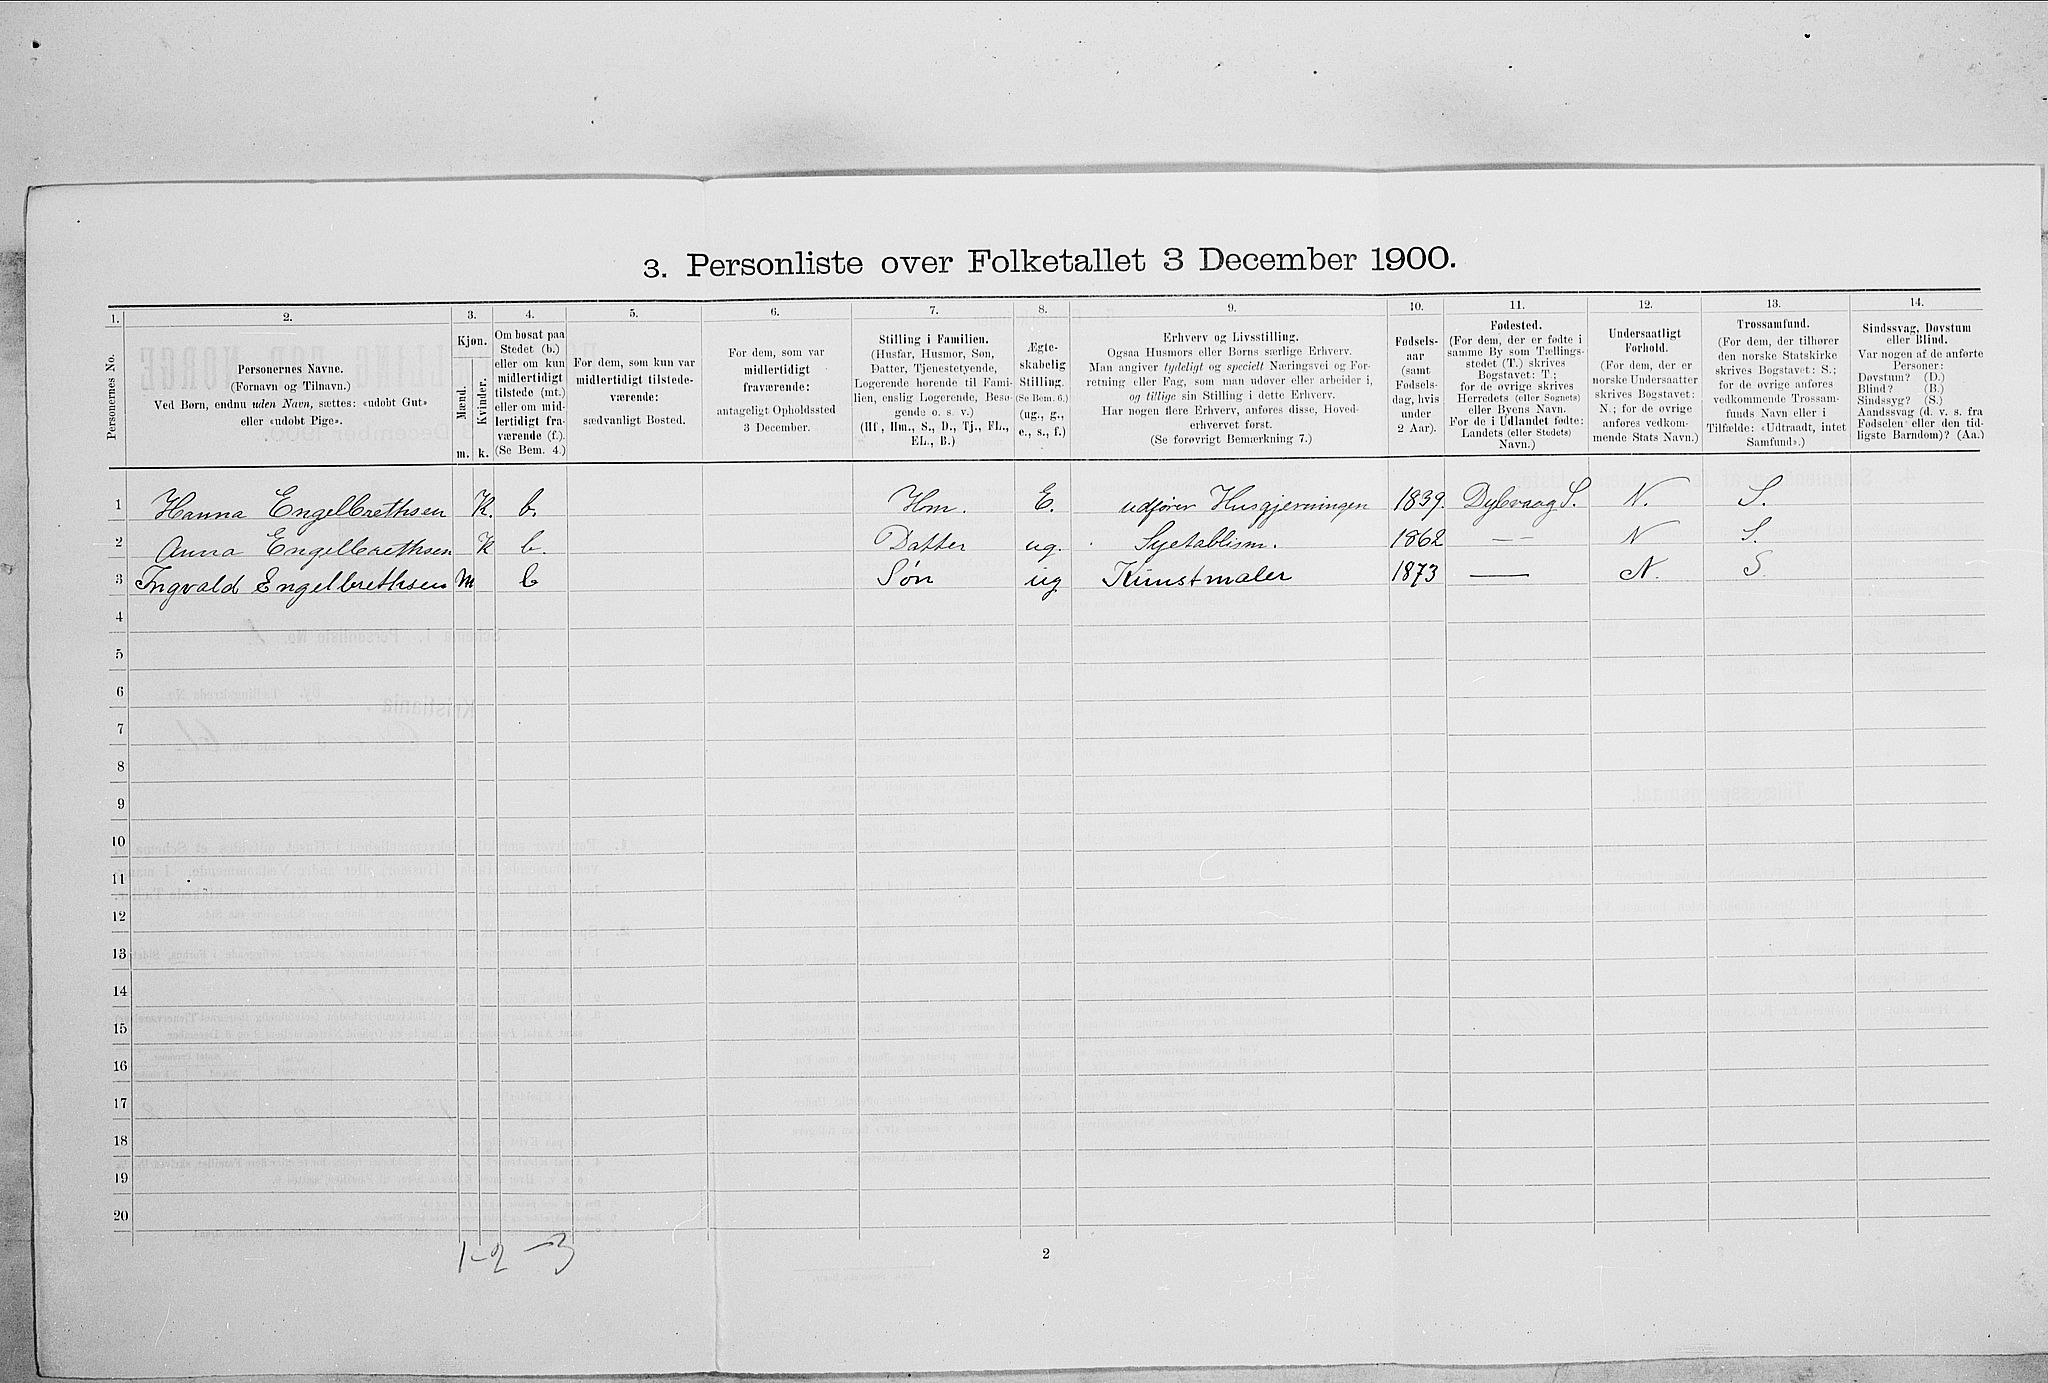 3. Personliste over Folketallet 3 December 1900.
1. 2. 3. 4. 5. 6. 7. 8. 9. 10. 11. 12. 13. 14.
Personernes No.
Personernes Navne.
(Fornavn og Tilnavn.)
Ved Børn, endnu uden Navn, sættes: «udobt Gut»
eller «udobt Pige».
Kjøn.
Mænd.
Kvinder.
m. k.
Om bosat paa
Stedet (b.)
eller om kun
midlertidigt
tilstede (mt.)
eller om mid-
lertidigt fra-
værende (f.).
(Se Bem. 4.)
For dem, som kun var
midlertidigt tilstede-
værende:
sædvanligt Bosted.
For dem, som var
midlertidigt
fraværende:
antageligt Opholdssted
3 December.
Stilling i Familien.
(Husfar, Husmor, Søn,
Datter, Tjenestetyende,
Logerende hørende til Fami-
lien, enslig Logerende, Besø-
gende o. s. v.)
(Hf., Hm., S., D., Tj., FL.,
EL., B.)
Ægte-
skabelig
Stilling.
(Se Bem. 6.)
(ug., g.,
e., s., f.)
Erhverv og Livsstilling.
Ogsaa Husmors eller Børns særlige Erhverv.
Man angiver tydeligt og specielt Næringsvei og For-
retning eller Fag, som man udøver eller arbeider i,
og tillige sin Stilling i dette Erhverv.
Har nogen flere Erhverv, anføres disse, Hoved-
erhvervet først.
(Se forøvrigt Bemærkning 7.)
Fødsels-
aar
(samt
Fødsels-
dag, hvis
under
2 Aar).
Fødested.
(For dem, der er fødte i
samme By som Tællings-
stedet (T.) skrives
Bogstavet: T.;
for de øvrige skrives
Herredets (eller Sognets)
eller Byens Navn.
For de i Udlandet fødte:
Landets (eller Stedets)
Navn.)
Undersaatligt
Forhold.
(For dem, der er
norske Undersaatter
skrives Bogstavet:
N.; for de øvrige
anføres vedkom-
mende Stats Navn.)
Trossamfund.
(For dem, der tilhører
den norske Statskirke
skrives Bogstavet: S.;
for de øvrige anføres
vedkommende Trossam-
funds Navn eller i
Tilfælde: «Udtraadt, intet
Samfund».)
Sindssvag, Døvstum
eller Blind.
Var nogen af de anførte
Personer:
Døvstum? (D.)
Blind? (B.)
Sindssyg? (S.)
Aandssvag (d. v. s. fra
Fødselen eller den tid-
ligste Barndom)? (Aa.)
1 Hanna Engelbrethsen K. b. Hm. E. udfører Husgjerningen 1839. Dybvaag S. N. S.
2 Anna Engelbrethsen K b. Datter ug. Syetablism. 1862 — — N S.
3 Ingvald Engelbrethsen M b Søn ug Kunstmaler 1873 — N. S
4
5
6
7
8
9
10
11
12
13
14
15
16
17
18
19
20
1-2 -3
2